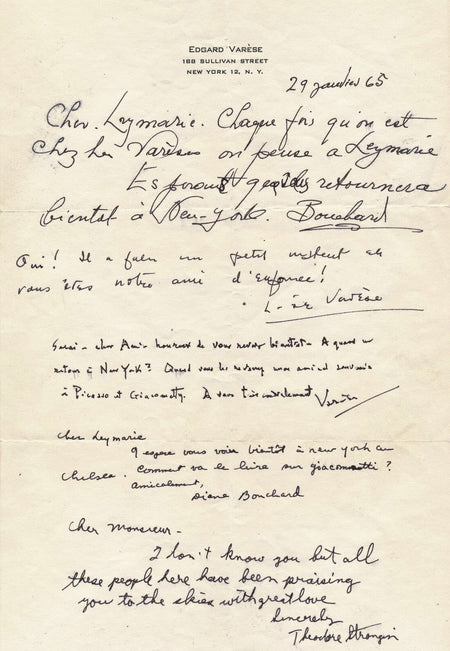 EDGARD VARÈSE
188 SULLIVAN STREET
NEW YORK 12, N. Y.
29 janvier 65
Cher. Leymarie. Chaque fois qu'on est
Chez les Varèse on pense a Leymarie
Esperons retournera
bientot à New-York. Bouchard
Oui! Il a un petit instant et
vous êtes notre ami d'enfance!
Varèse
cher Ami- heureux de vous revoir bientôt-
retour à New York? Quand vous les mon amical souvenir
à Picasso et Giacometti. A vous très cordialement Varèse
Cher Leymarie
J espere vous voir bientôt à new york au
Chelsea. Comment va le livre sur giacometti?
amicalement,
Diane Bouchard
Cher Monsieur-
I don't know you but all
these people here have been praising
you to the skies with great love
Sincerely
Theodore Strongin